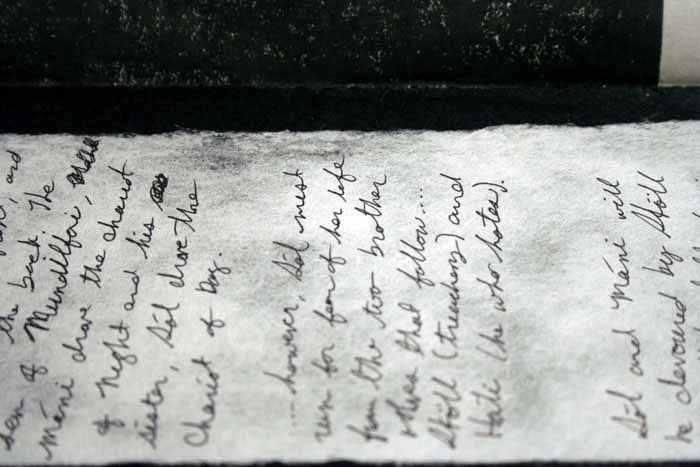 and
the back. The
son of Mundilföri,
Máni drove the chariot
of Night and his
sister, Sól drove the
Chariot of Day.
...however, Sól must
run for fear of her life
from the two brother
wolves that follow...
Sköll (treachery) and
Hati (he who hates).
Sól and Máni will
be devoured by Sköll